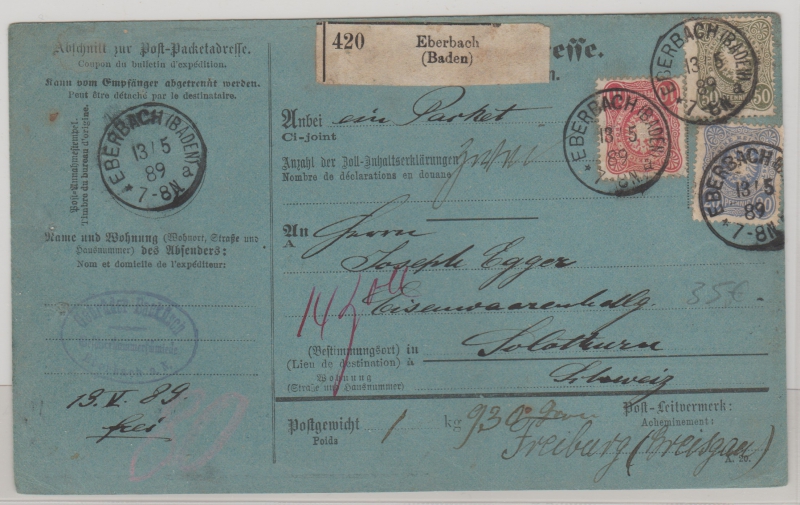 Abschnitt zur Post-Packetadresse.
Coupon du bulletin d'expédition.
Kann vom Empfänger abgetrennt werden.
Peut être détaché par le destinataire.
Post-Annahmestempel.
Timbre du bureau d'origine.
EBERBACH (BADEN)
13/5
89
* 7-8N a
Name und Wohnung (Wohnort, Straße und
Hausnummer) des Absenders:
Nom et domicile de l'expéditeur:
13. V. 89.
frei
420 Eberbach
(Baden)
esse.
n.
EBERBACH (BADEN)
13/5
89
* 7-8N a
50
EBERBACH (BADEN)
13/5
89
* 7-8N a
EBERBACH
13/5
89
* 7-8N
20
Anbei ein Packet
Ci-joint
Anzahl der Zoll-Inhaltserklärungen zwei
Nombre de déclarations en douane
An Herrn
A
Joseph Egger
Eisenwaarenhdlg
35€
14
(Bestimmungsort) in Solothurn
(Lieu de destination) à
Wohnung Schweiz
(Straße und Hausnummer)
Postgewicht 1 kg 930 grm
Poids
Post-Leitvermerk:
Acheminement:
Freiburg (Breisgau)